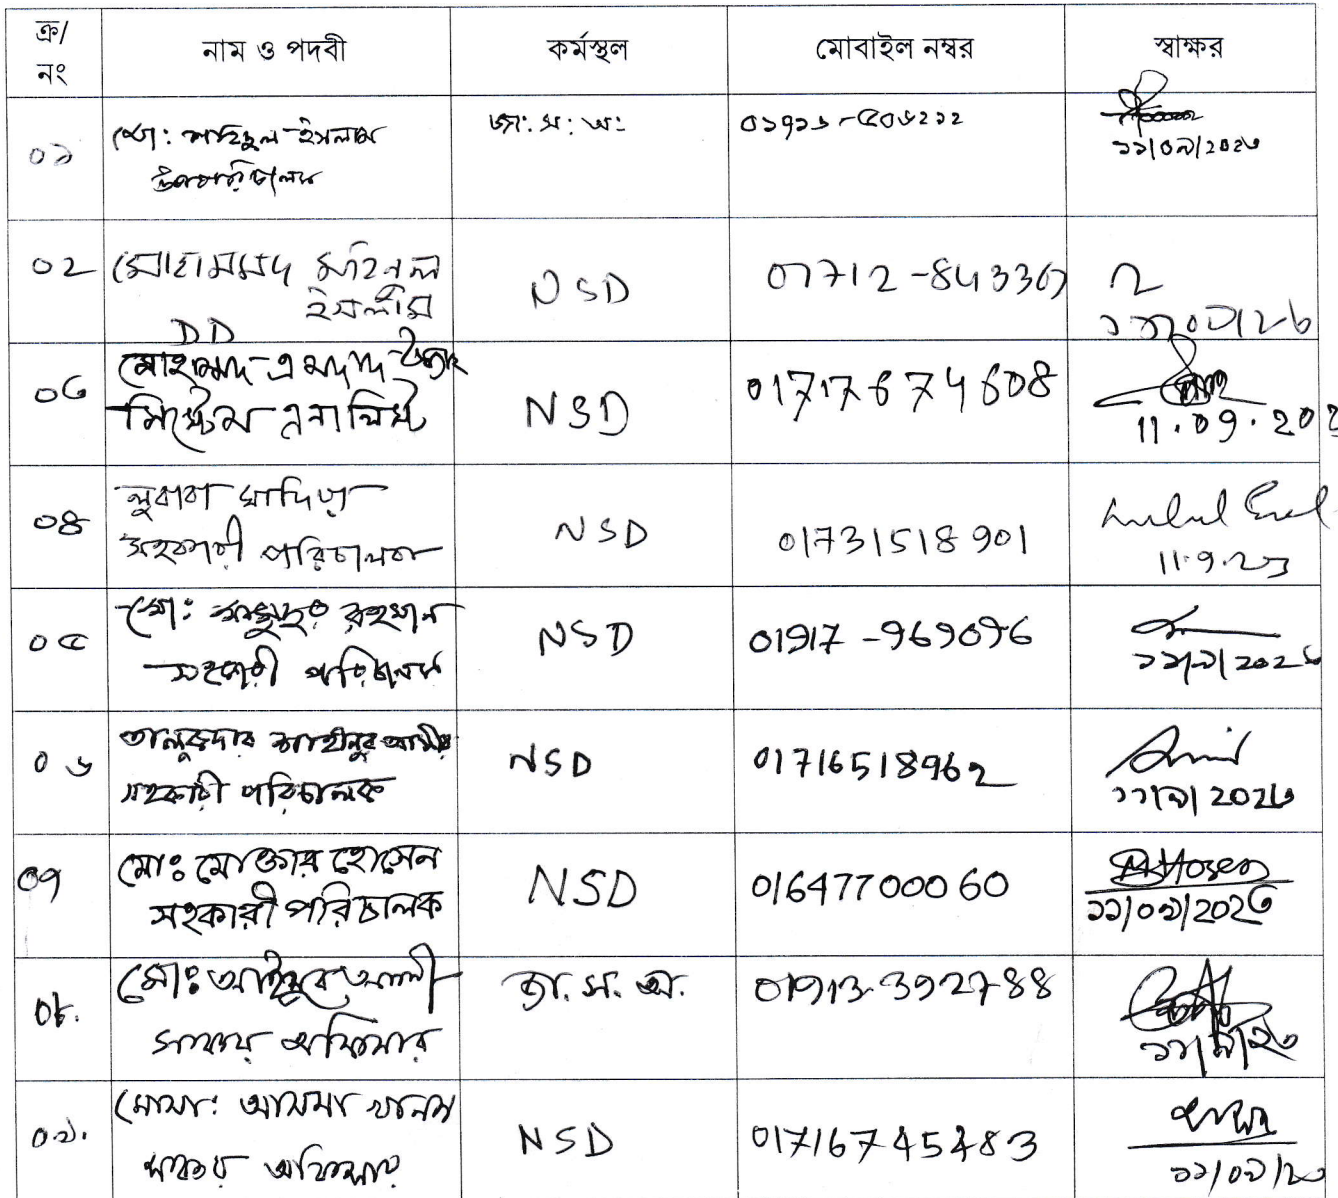 ক্র/
নং
নাম ও পদবী
কর্মস্থল
মোবাইল নম্বর
স্বাক্ষর
০১
মো: শহিদুল ইসলাম
উপপরিচালক
জা: স: অ:
১১/০৯/২০২৩
০২
মোহাম্মদ মহিনুল
ইসলাম
DD
NSD
০৩
মোহাম্মদ এমদাদ উল্লাহ
সিস্টেম এনালিস্ট
NSD
01717674608
11.09.202
০৪
লুবাবা সাদিয়া
সহকারী পরিচালক
NSD
01731518901
11.9.23
০৫
মো: মাহবুবুর রহমান
সহকারী পরিচালক
NSD
01917-969096
১১/৯/২০২৩
০৬
তালুকদার শাহীনুর আমীর
সহকারী পরিচালক
NSD
01716518962
১১/৯/২০২৩
০৭
মোঃ মোক্তার হোসেন
সহকারী পরিচালক
NSD
01647700060
১১/০৯/২০২৩
০৮.
মোঃ আইয়ুব আলী
সঞ্চয় অফিসার
জা. স. অ.
01913-392788
১১/৯/২৩
০৯.
মোসা: আসমা খানম
সঞ্চয় অফিসার
NSD
01716745483
১১/০৯/২৩